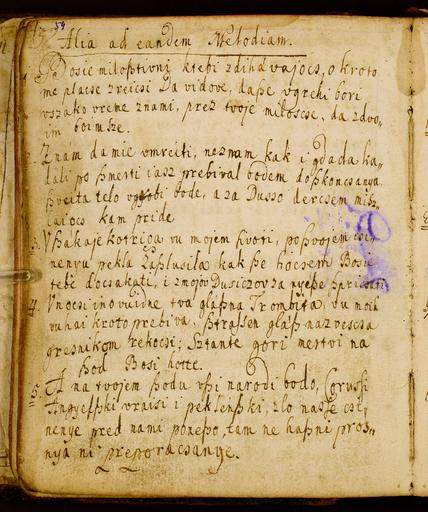 54
Alia ad eandem Melodiam.
Bosie milostivni, ktebi zdihavajocs, o kroto
me placse zreicsi Da vidove, daße vgrehi bori
vszako vreme znami, prez tvoje miloscse, da zdvo,,
im boimsze.
2. Znam da mie vmreiti, neznam kak i gda da ka,,
dali po ßmerti iasz prebival bodem doßkoncsanya,
ßveita telo vgrobi bode, a za Dusso dercsem milo,,
kam pride
3. Vßakaje kotriga vu mojem ßvori, poßvojem csi,,
nenyu pekla zaßlusila kak ße hocsem Bosie
tebe docsakati, i zmojov Dusiczov za nyeße
4. Vnocsi ino vuidne tva glaßna Trombita, vu moih
vuhai kroto prebiva, ßtraßen glaß naznescsa
gresnikom rekocsi; Sztante gori mertvi na
ßod Bosi hotte.
5. A na tvojem ßodu vßi narodi bodo, Corussi
Angyelßki vraisi i peklenßki, zlo nasse csi,,
nenye pred nami poneßo, tam ne haßni pros,,
nya ni preporacsanye.